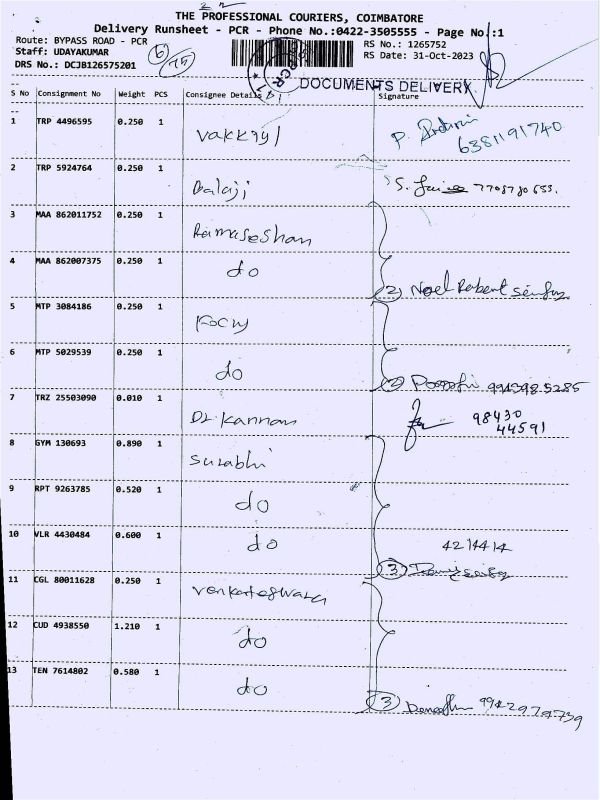 THE PROFESSIONAL COURIERS, COIMBATORE
Delivery Runsheet - PCR - Phone No.:0422-3505555 - Page No.:1
Route: BYPASS ROAD - PCR RS No.: 1265752
Staff: UDAYAKUMAR RS Date: 31-Oct-2023
DRS No.: DCJB126575201
DOCUMENTS DELIVERY
S No Consignment No Weight PCS Consignee Details Signature
1 TRP 4496595 0.250 1 6381191740
2 TRP 5924764 0.250 1 Balaji
3 MAA 862011752 0.250 1 Ramaseshan
4 MAA 862007375 0.250 1 do (2) Noel Robert
5 MTP 3084186 0.250 1
6 MTP 5029539 0.250 1 do (2) 9943985285
7 TRZ 25503090 0.010 1 Dr. Kannan 98430
44591
8 GYM 130693 0.890 1 Surabhi
9 RPT 9263785 0.520 1 do
10 VLR 4430484 0.600 1 do 4214414
(3)
11 CGL 80011628 0.250 1 Venkateswara
12 CUD 4938550 1.210 1 do
13 TEN 7614802 0.580 1 do (3) 9942974739